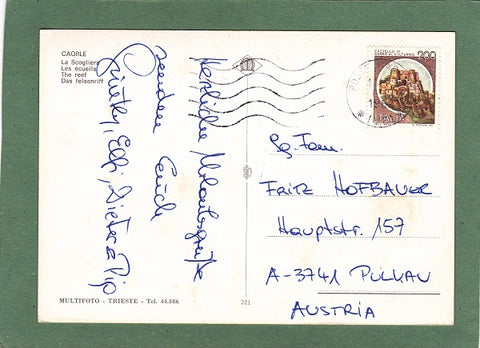 CAORLE
La Scogliera
Les écueils
The reef
Das felsenriff
Herzliche Urlaubsgrüße
senden Euch
Elfi, Dieter & Pip
CASTELLO DI
200
ITALIA
Sg. Fam.
FRITZ HOFBAUER
Hauptstr. 157
A-3741 PULKAU
AUSTRIA
MULTIFOTO - TRIESTE - Tel. 44.886
221